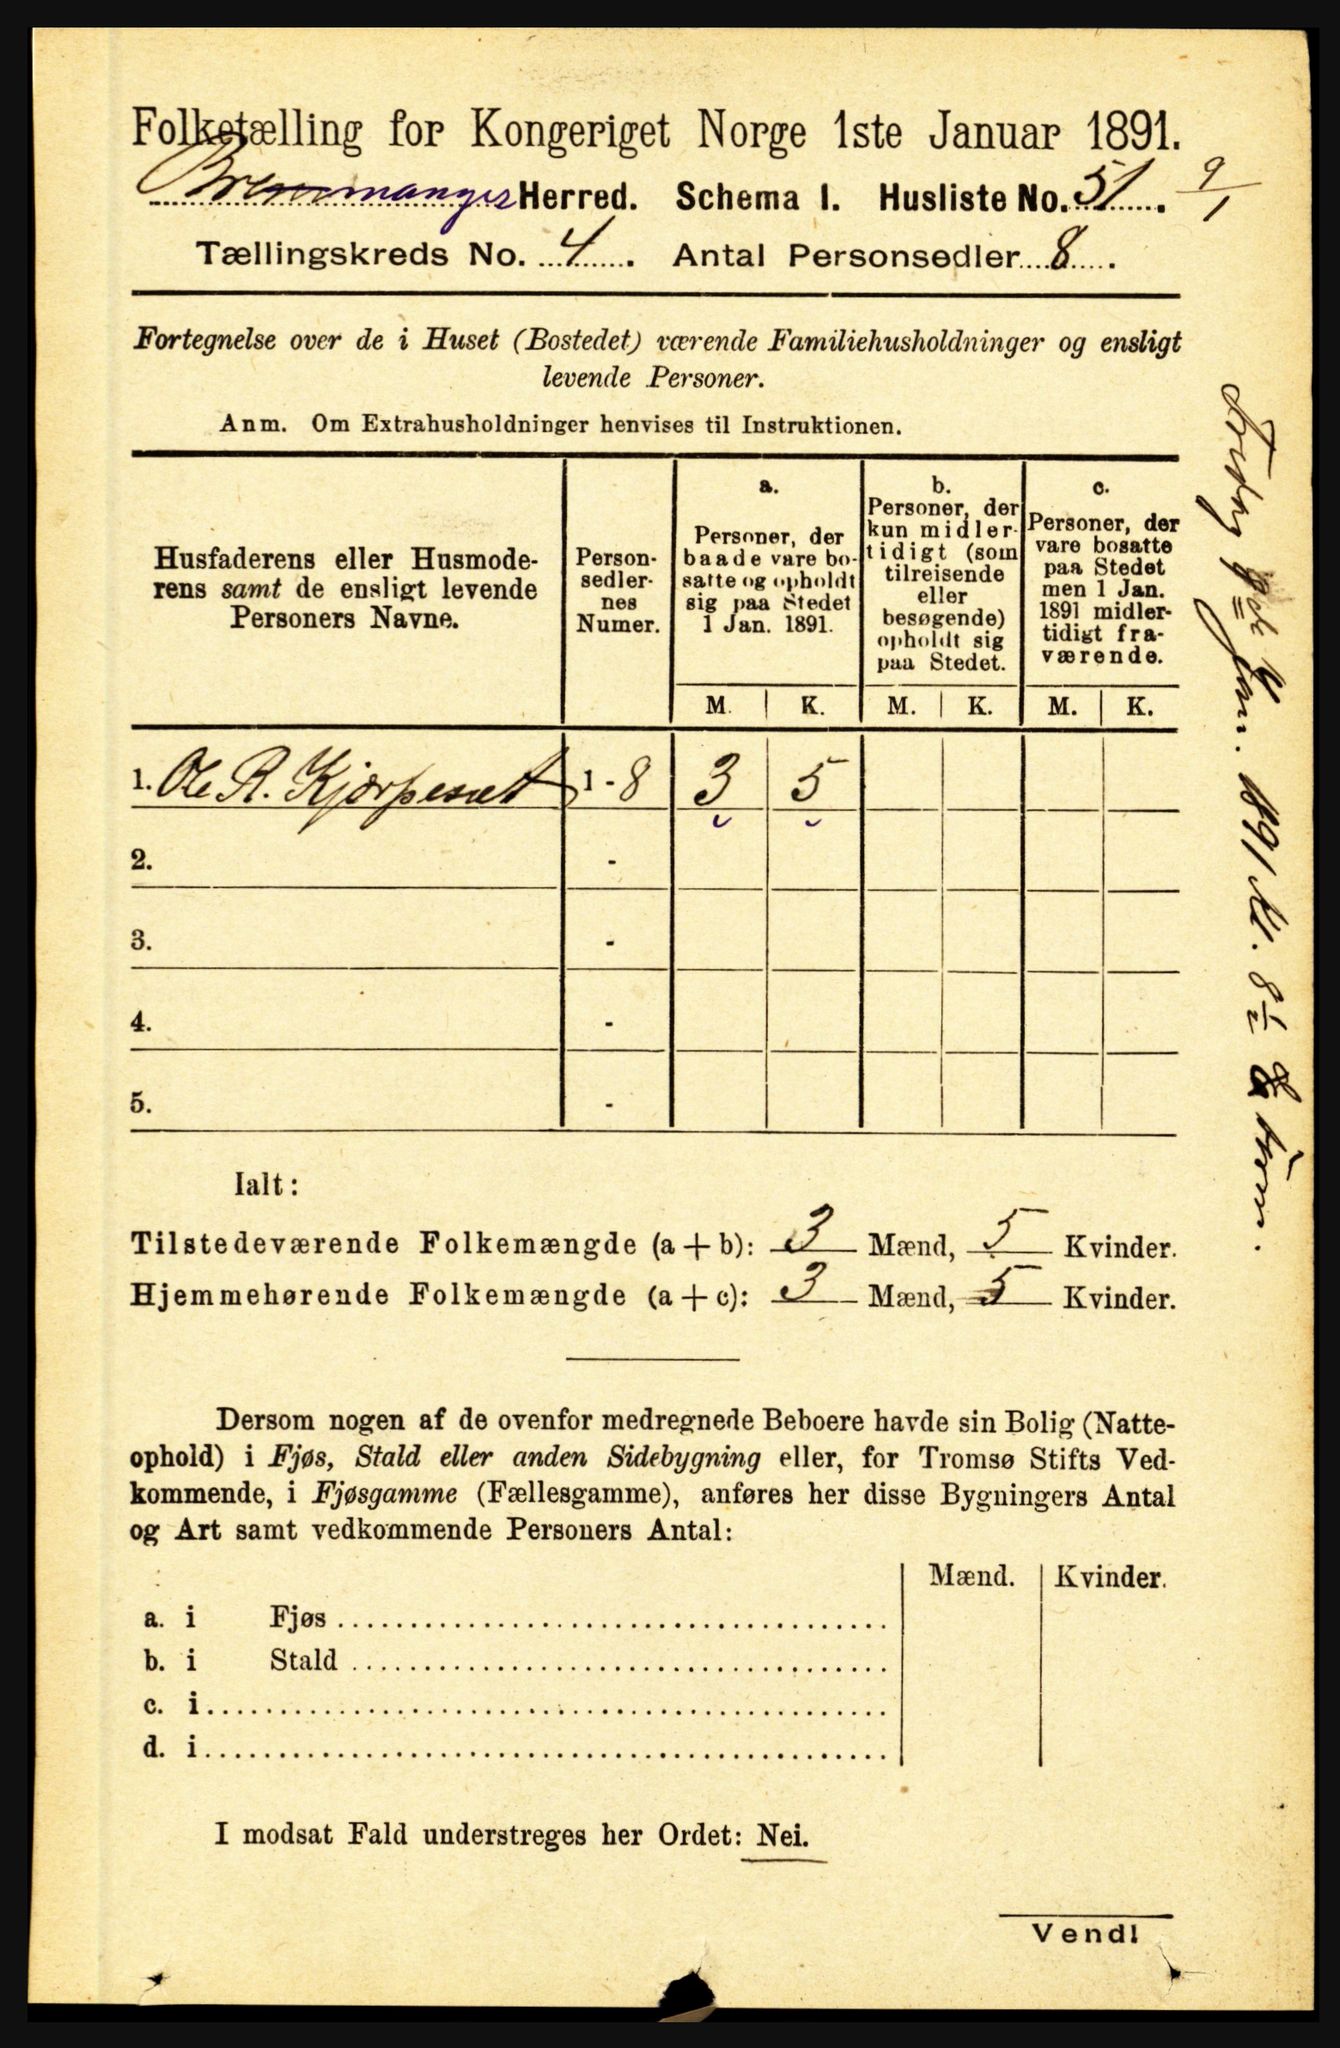 Folketælling for Kongeriget Norge 1ste Januar 1891.
Bremanger Herred. Schema I. Husliste No. 51. 9/1
Tællingskreds No. 4. Antal Personsedler 8.
Fortegnelse over de i Huset (Bostedet) værende Familiehusholdninger og ensligt
levende Personer.
Anm. Om Extrahusholdninger henvises til Instruktionen.
Husfaderens eller Husmode-
rens samt de ensligt levende
Personers Navne.
Person-
sedler-
nes
Numer.
a.
Personer, der
baade vare bo-
satte og opholdt
sig paa Stedet
1 Jan. 1891.
b.
Personer, der
kun midler-
tidigt (som
tilreisende
eller
besøgende)
opholdt sig
paa Stedet.
c.
Personer, der
vare bosatte
paa Stedet
men 1 Jan.
1891 midler-
tidigt fra-
værende.
M. K. M. K. M. K.
1. Ole R. 1 - 8 3 5
2. -
3. -
4. -
5. -
Ialt:
Tilstedeværende Folkemængde (a + b): 3 Mænd, 5 Kvinder.
Hjemmehørende Folkemængde (a + c): 3 Mænd, 5 Kvinder.
Dersom nogen af de ovenfor medregnede Beboere havde sin Bolig (Natte-
ophold) i Fjøs, Stald eller anden Sidebygning eller, for Tromsø Stifts Ved-
kommende, i Fjøsgamme (Fællesgamme), anføres her disse Bygningers Antal
og Art samt vedkommende Personers Antal:
Mænd. Kvinder.
a. i Fjøs
b. i Stald
c. i
d. i
I modsat Fald understreges her Ordet: Nei.
Vend!
Jan. 1891 Kl. 8 1/2